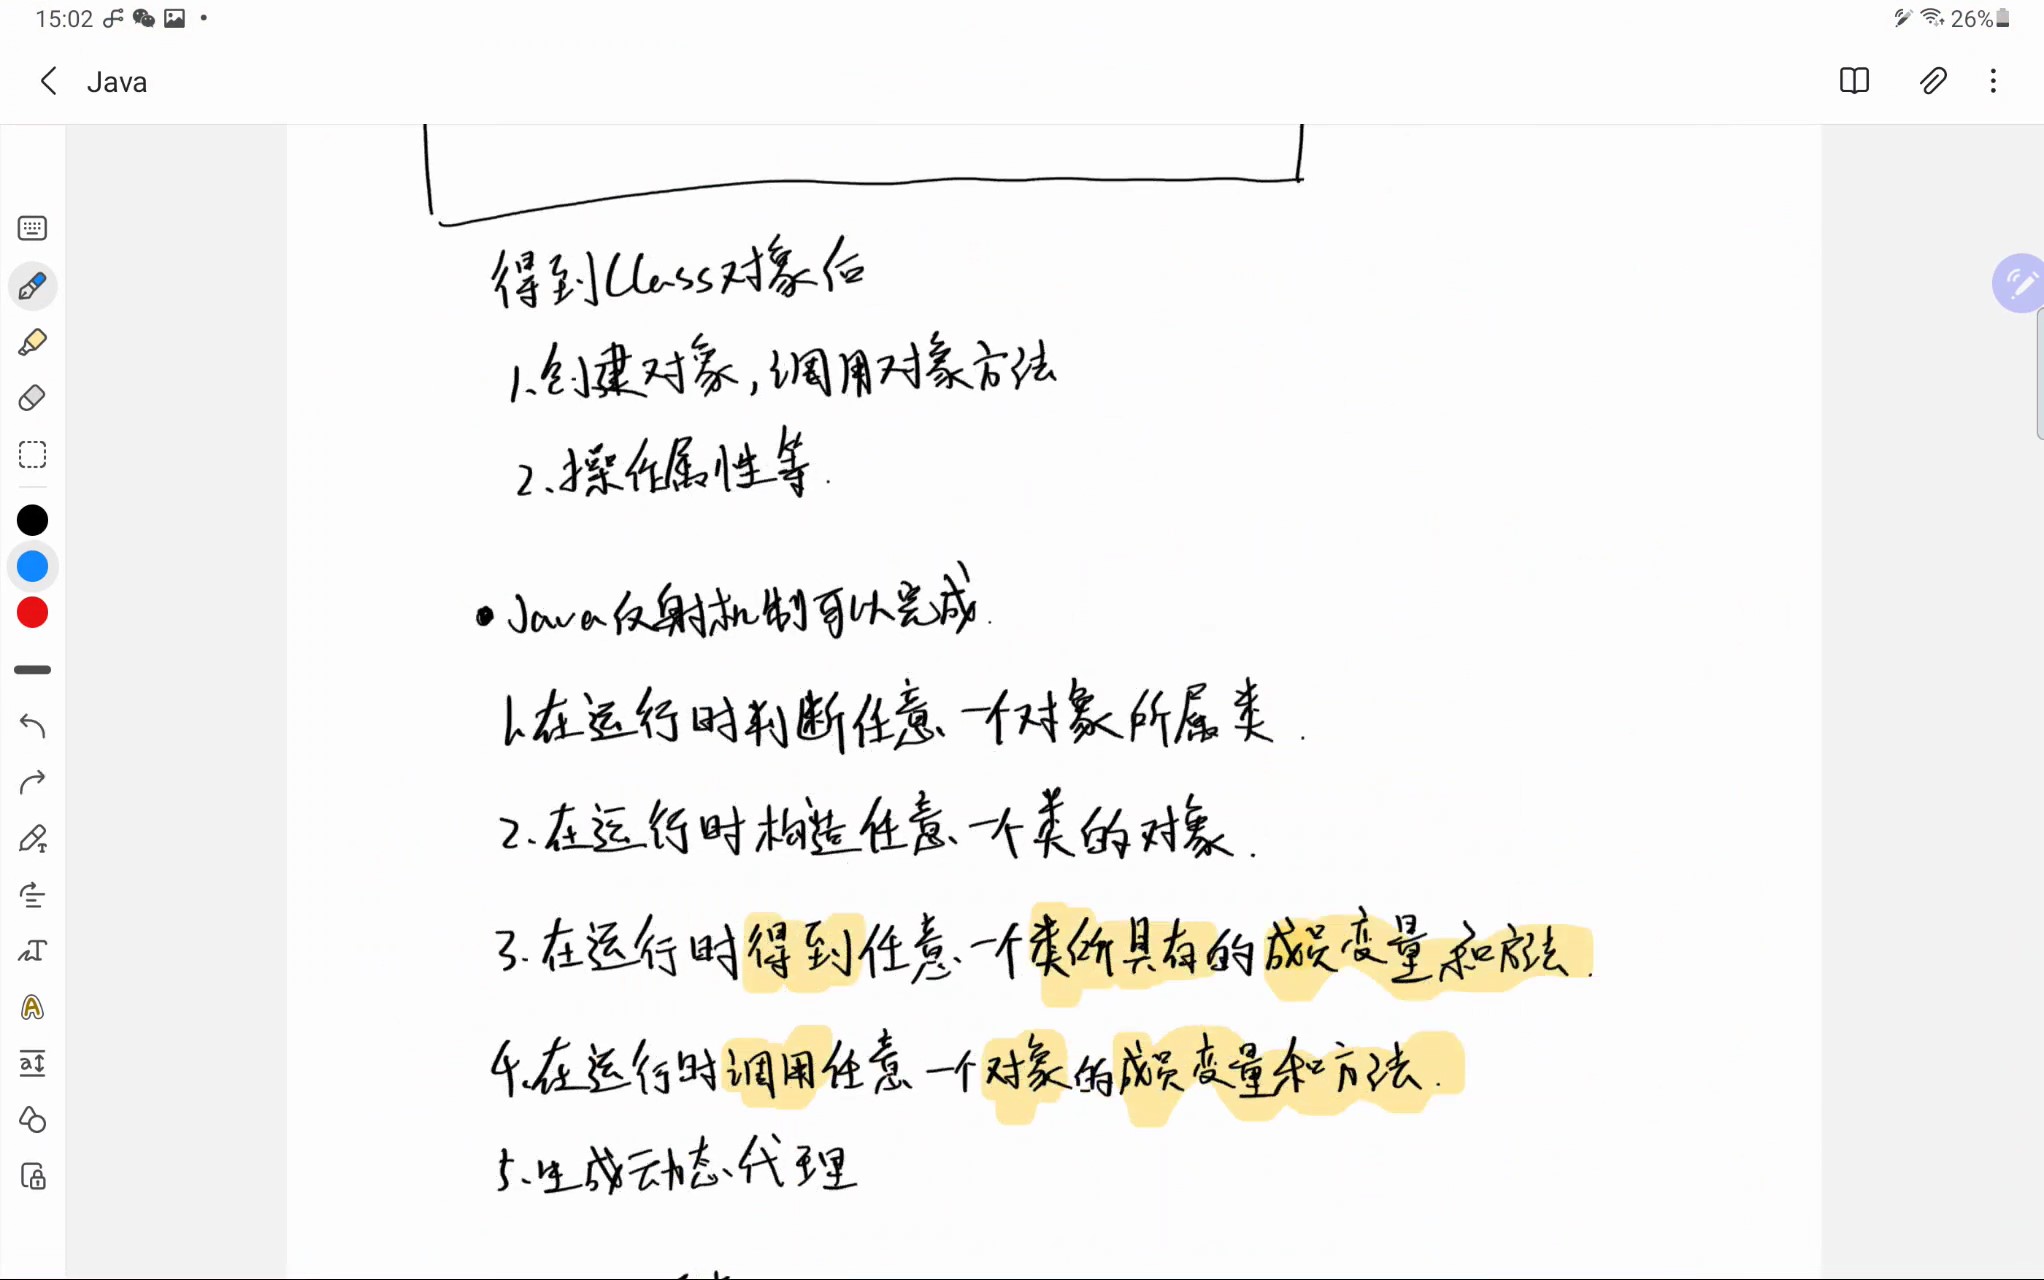 15:02
26%
Java
得到Class对象后
1.创建对象,调用对象方法
2.操作属性等.
•Java反射机制可以完成.
1.在运行时判断任意一个对象所属类.
2.在运行时构造任意一个类的对象.
3.在运行时得到任意一个类所具有的成员变量和方法.
4.在运行时调用任意一个对象的成员变量和方法.
5.生成动态代理